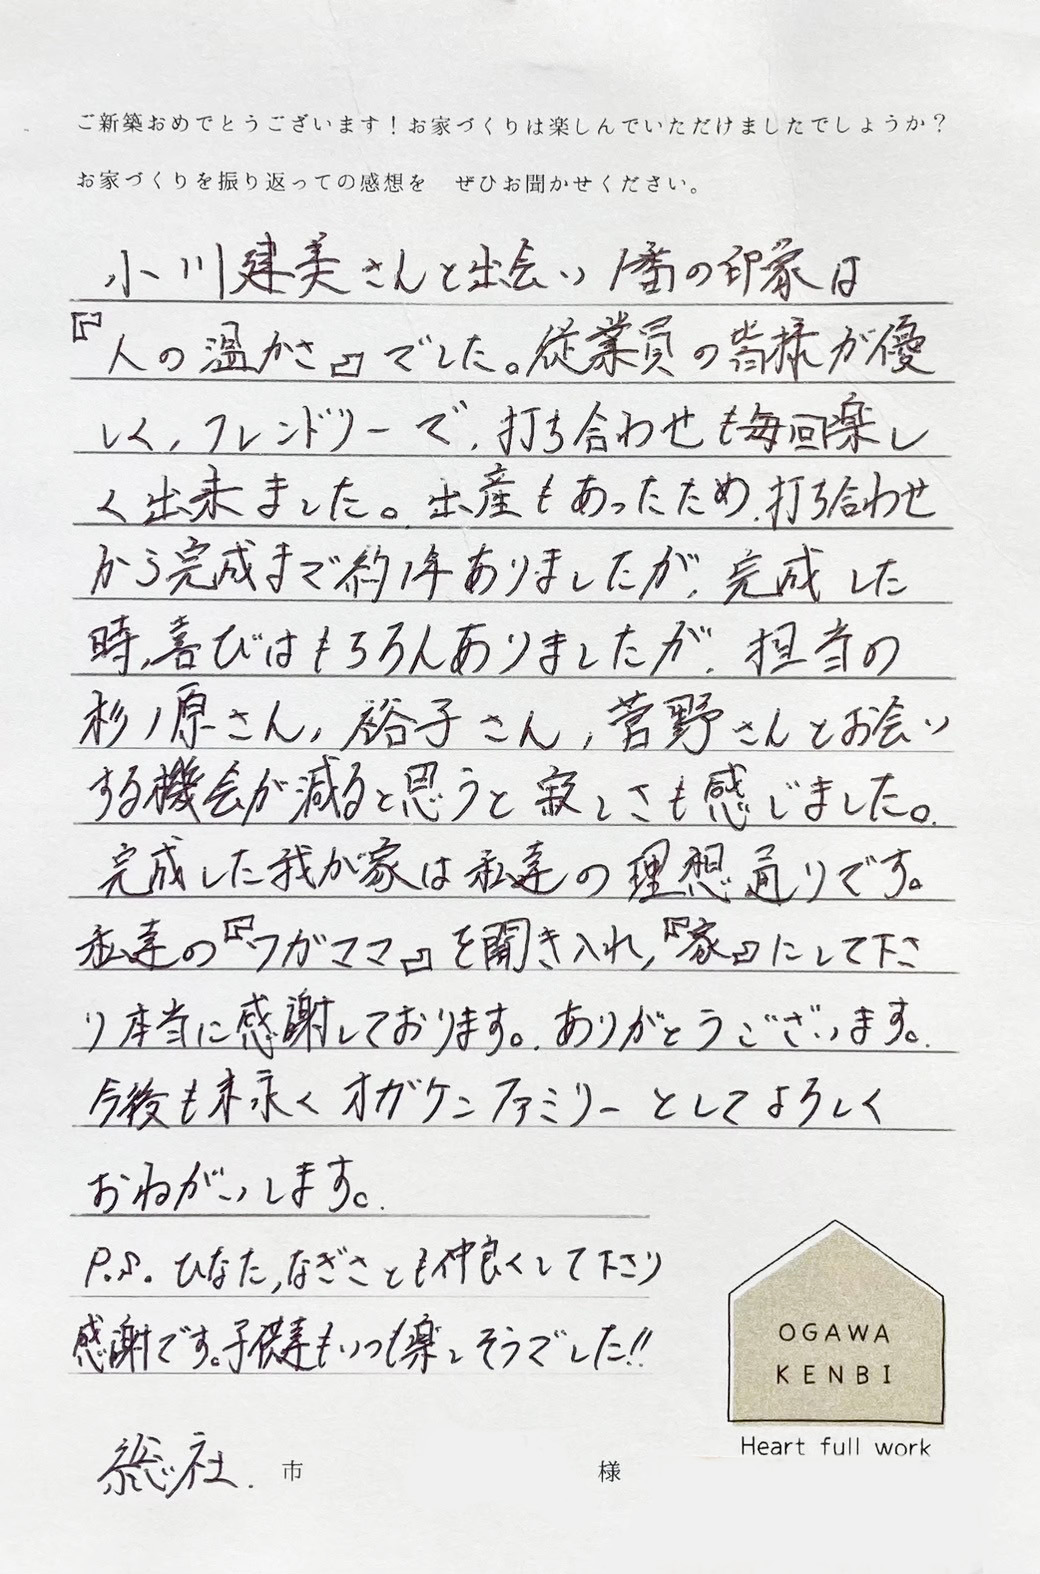 ご新築おめでとうございます！お家づくりは楽しんでいただけましたでしょうか？
お家づくりを振り返っての感想を　ぜひお聞かせください。
小川建美さんと出会い1番の印象は
『人の温かさ』でした。従業員の皆様が優
しく、フレンドリーで、打ち合わせも毎回楽し
く出来ました。出産もあったため、打ち合わせ
から完成まで約1年ありましたが、完成した
時、喜びはもちろんありましたが、担当の
杉ノ原さん、裕子さん、菅野さんとお会い
する機会が減ると思うと寂しさも感じました。
完成した我が家は私達の理想通りです。
私達の『ワガママ』を聞き入れ、『家』にして下さ
り本当に感謝しております。ありがとうございます。
今後も末永くオガケンファミリーとしてよろしく
おねがいします。
P.S. ひなた、なぎさとも仲良くして下さり
感謝です。子供達もいつも楽しそうでした!!
OGAWA
KENBI
Heart full work
総社 市　様